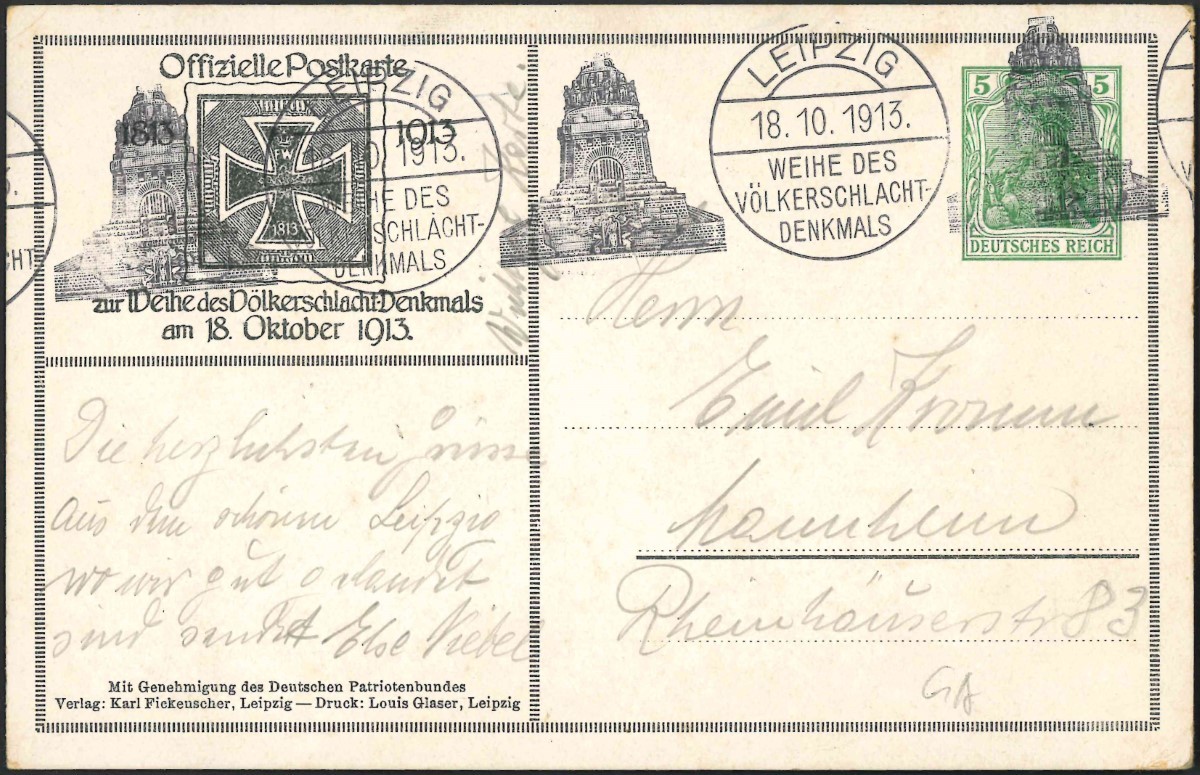 Offizielle Postkarte
1813 1913
FW
1813
zur Weihe des Völkerschlacht Denkmals
am 18. Oktober 1913.
LEIPZIG
18. 10. 1913.
WEIHE DES
VÖLKERSCHLACHT-
DENKMALS
LEIPZIG
18. 10. 1913.
WEIHE DES
VÖLKERSCHLACHT-
DENKMALS
5 5
DEUTSCHES REICH
Herrn
Emil
Mannheim
Rheinhäuserstr 83
Die herzlichsten Grüsse
Aus dem schönen Leipzig
wo wir gut gelandet
sind sendet Else
Mit Genehmigung des Deutschen Patriotenbundes
Verlag: Karl Fickenscher, Leipzig — Druck: Louis Glaser, Leipzig
GA